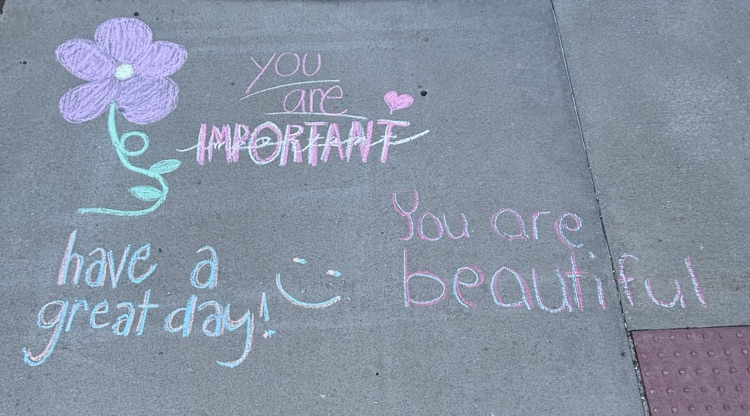 you
are
IMPORTANT
important
have a
great day!
You are
beautiful